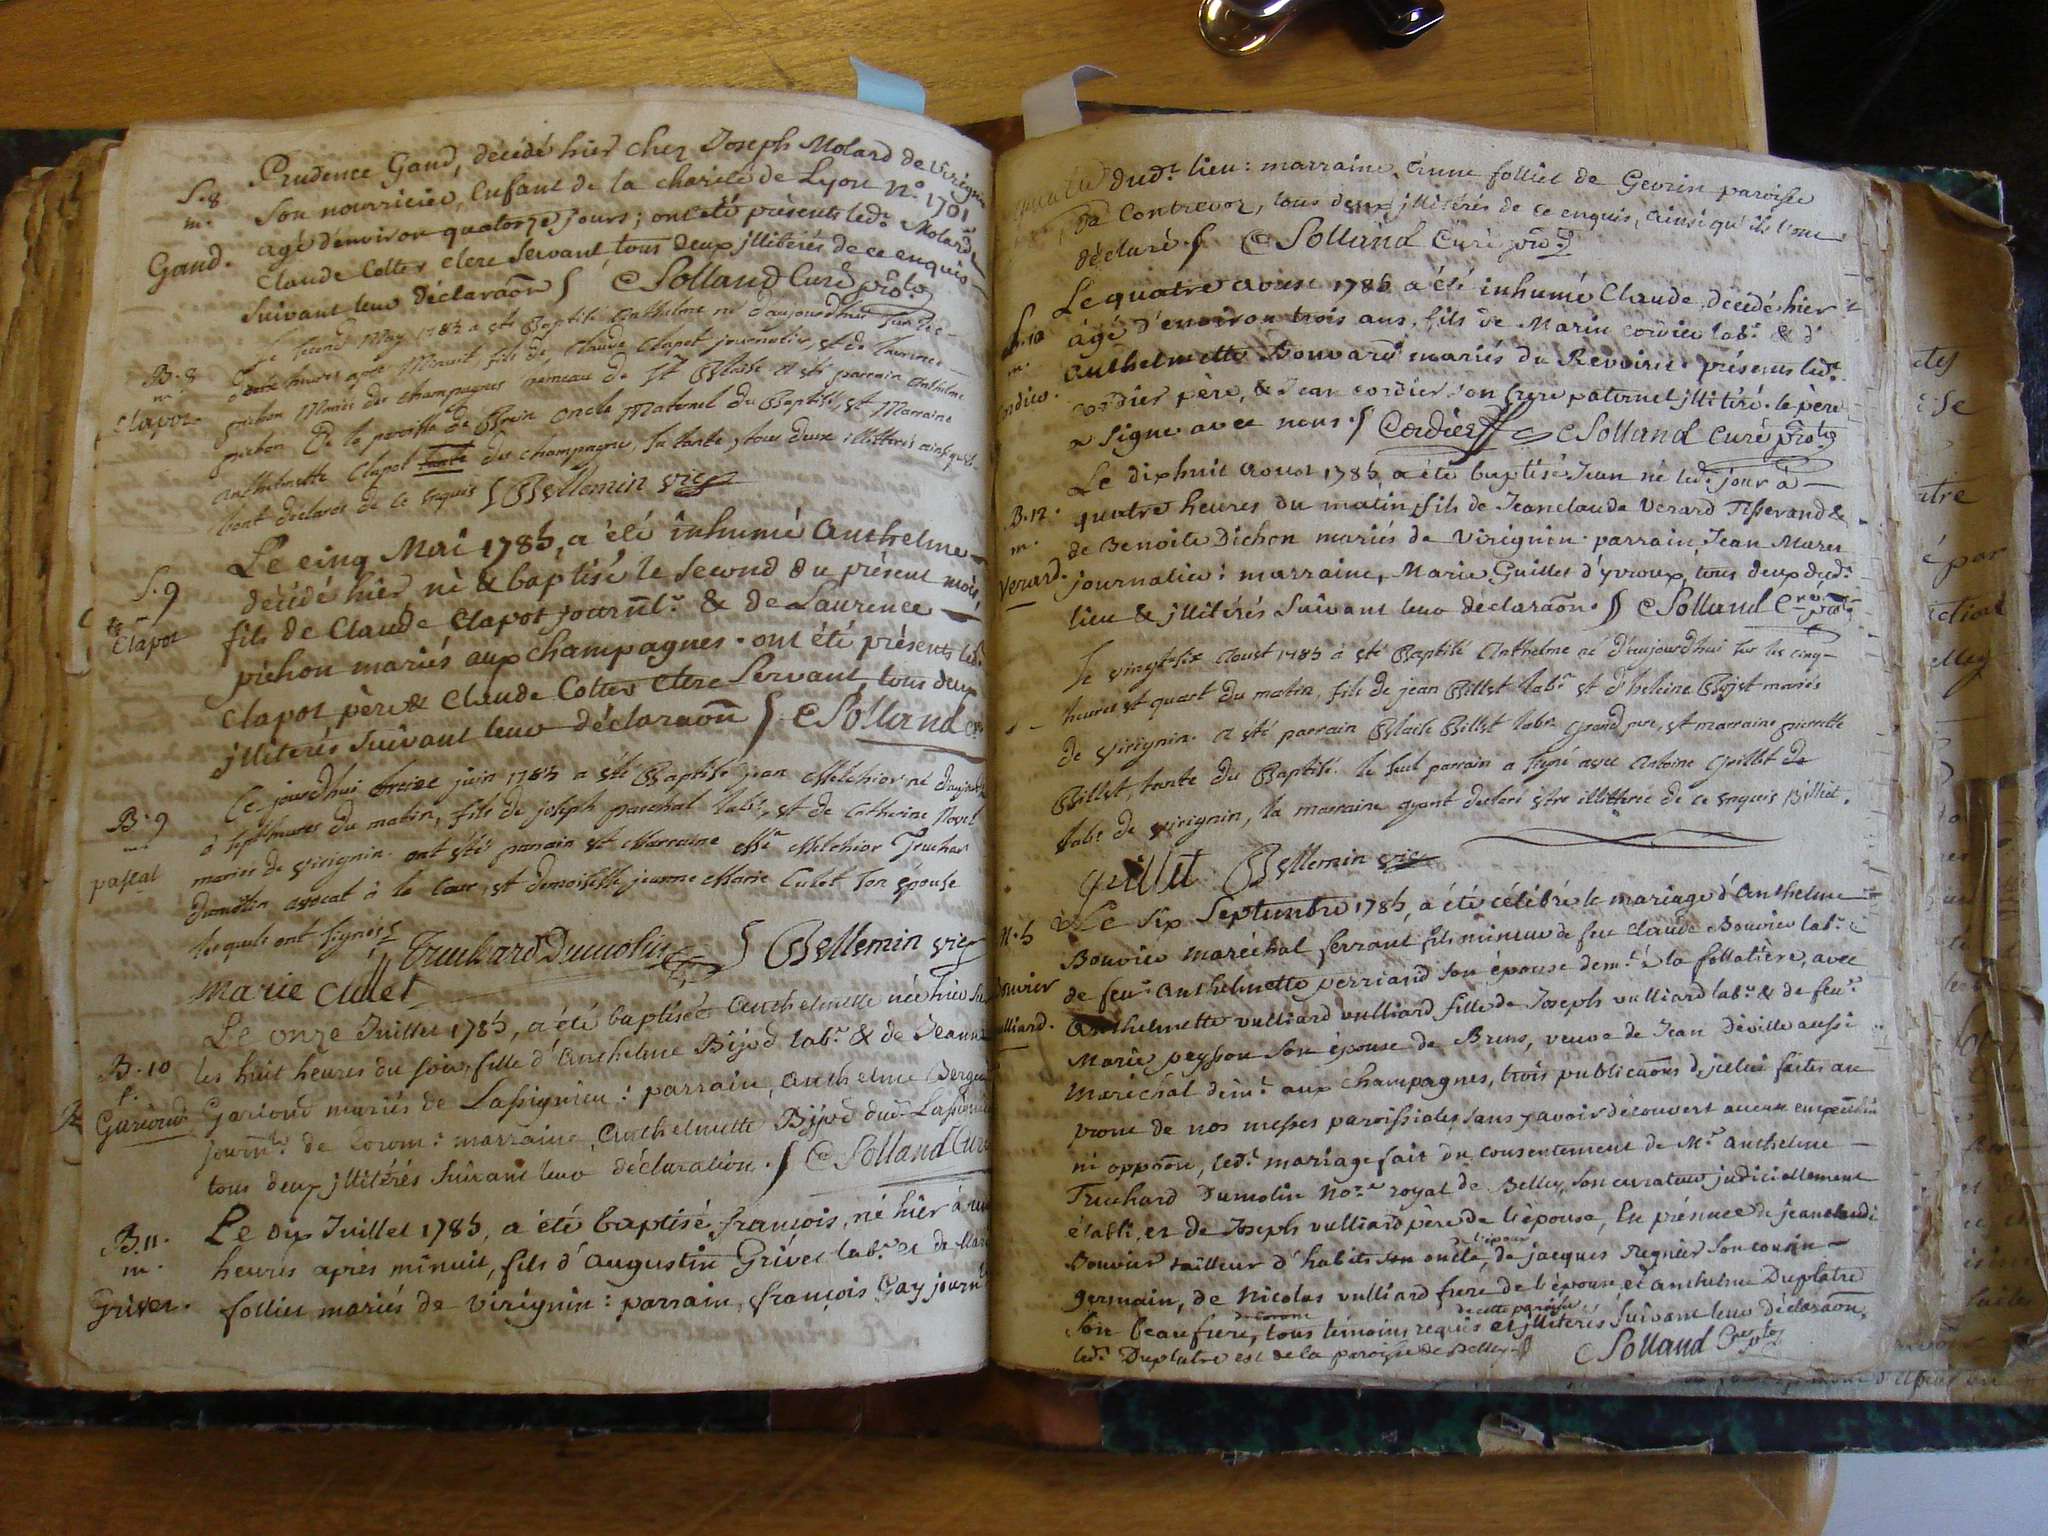 Prudence Gand, décédé hier chez Joseph Molard de Virignin
S. 8
m.
Gand.
son nourricier, Enfant de la charité de Lyon N.º 1701
agé d'environ quatorze jours; ont été présents led.t Molard &
Claude Cotter clerc servant, tous deux jllitérés de ce enquis
suivant leur déclaraõn § C Solland Curé
Le second May 1785 a été Baptisé Anthelme né d'aujourd'hui sur les
B. 8
m.
Clapot
deux heures après Minuit fils de Claude Clapot journalier, et de Laurence
pichon Mariés des champagnes hameau de St Blaise a été parrain Anthelme
pichon de la paroisse de Brein oncle Maternel du Baptisé, et Marraine
Anthelmette Clapot tante des champagnes, sa tante, tous deux illitterés ainsi qu'ils
l'ont déclarés de ce Enquis § Bellemin vic
Le cinq Mai 1785, a été inhumé Anthelme
S. 9
m
Clapot
décédé hier né & baptisé le second du présent mois,
fils de Claude Clapot journl.r & de Laurence
pichon mariés aux champagnes. ont été présents led.t
Clapot père & Claude Cotter clerc servant, tous deux
jllitérés suivant leur déclaraõn § C Solland
Ce jourd'hui treize juin 1785 a été Baptisé jean Melchior né d'aujourd'hui
B. 9
m.
pascal
à sept heures du matin, fils de joseph paschal lab.r, et de Catherine Novel
mariés de virignin. ont été parrain et Marraine Mre Melchior Truchar
Dumolin avocat à la Cour, et demoiselle jeanne Marie Culet son épouse
lesquels ont signés §
Truchard Dumolin § Bellemin vic
Marie Culet
Le onze Juillet 1785, a été baptisée Anthelmette née hier sur
B. 10
f.
Garioud
les huit heures du soir, fille d'Anthelme Bijod lab.r & de Jeanne
Gariond mariés de Lassignieu: parrain, Anthelme Berger
journ.er de Corom: marraine, Anthelmette Bijod dud.t Lassignieu
tous deux jllitérés suivant leur déclaration. § C Solland Curé
Le dix Juillet 1785, a été baptisé françois, né hier à une
B. 11.
m.
Grivet.
heures après minuit, fils d'Augustin Grivet lab.r et de Marie
folliet mariés de Virignin: parrain, françois Gay journ
dud.t lieu: marraine, Anne folliet de Gevrin paroisse
de Contrevoz, tous deux jllitérés de ce enquis, ainsi qu'ils l'ont
déclaré. § C Solland Curé
Le quatre Aoust 1785 a été inhumé Claude, décédé hier
S. 10
m.
Cordier.
âgé d'environ trois ans, fils de Marin Cordier lab.r & d'
Anthelmette Bouvard mariés du Revoiret. présents led.t
Cordier père, & Jean Cordier son frere paternel jllitéré. le père
a signé avec nous. § Cordier C Solland Curé
Le dixhuit Aoust 1785, a été baptisé Jean né led.t jour à
B. 12.
m.
Verard.
quatre heures du matin, fils de Jeanclaude Verard Tisserand &
de Benoite Dichon mariés de Virignin. parrain, Jean Muret
journalier: marraine, Marie Guillet d'yvroux, tous deux dud.t
lieu & jllitérés suivant leur déclaraõn. § C Solland
Le vingt-six Aoust 1785 a été Baptisé Anthelme né d'aujourd'hui sur les cinq
heures et quart du matin, fils de jean Billet lab.r et d'heleine Rojet mariés
de virignin. a été parrain Blaise Billet lab.r grand pere, et marraine pierrette
Billet, tante du Baptisé. le seul parrain a signé avec Antoine Guillet de
lab.r de virignin, la marraine ayant declaré être illitterée de ce enquis Billiet.
guillet Bellemin vic
Le six septembre 1785, a été célébré le mariage d'Anthelme
M. 5
Bouvier
Vulliard.
Bouvier maréchal ferrant fils mineur de feu Claude Bouvier lab.r
de feu.e Anthelmette perriand son épouse dem.t à la follatière, avec
Anthelmette vulliard vulliard fille de Joseph vulliard lab.r & de feu.e
Marie peysson son épouse de Brens, veuve de Jean Déville aussi
Maréchal dem.t aux champagnes, trois publicaõns d'jcelui faites au
prone de nos messes paroissiales, sans y avoir découvert aucun empêchm
ni oppoõn, led.t mariage fait du consentement de M.r Anthelme
Truchard Dumolin No.re royal de Belley, son curateur judiciellement
établi, et de Joseph vulliard père de l'épouse, En présence de jeanclaude
Bouvier tailleur d'habits son oncle, de l'époux de jacques Regnier son cousin
germain, de Nicolas vulliard frere de l'épouse, et anthelme Duplatre
son beaufrere, tous témoins requis de cette paroisse et jllitérés suivant leur déclaraõn.
led.t Duplatre est de la paroisse de Belley. § C Solland